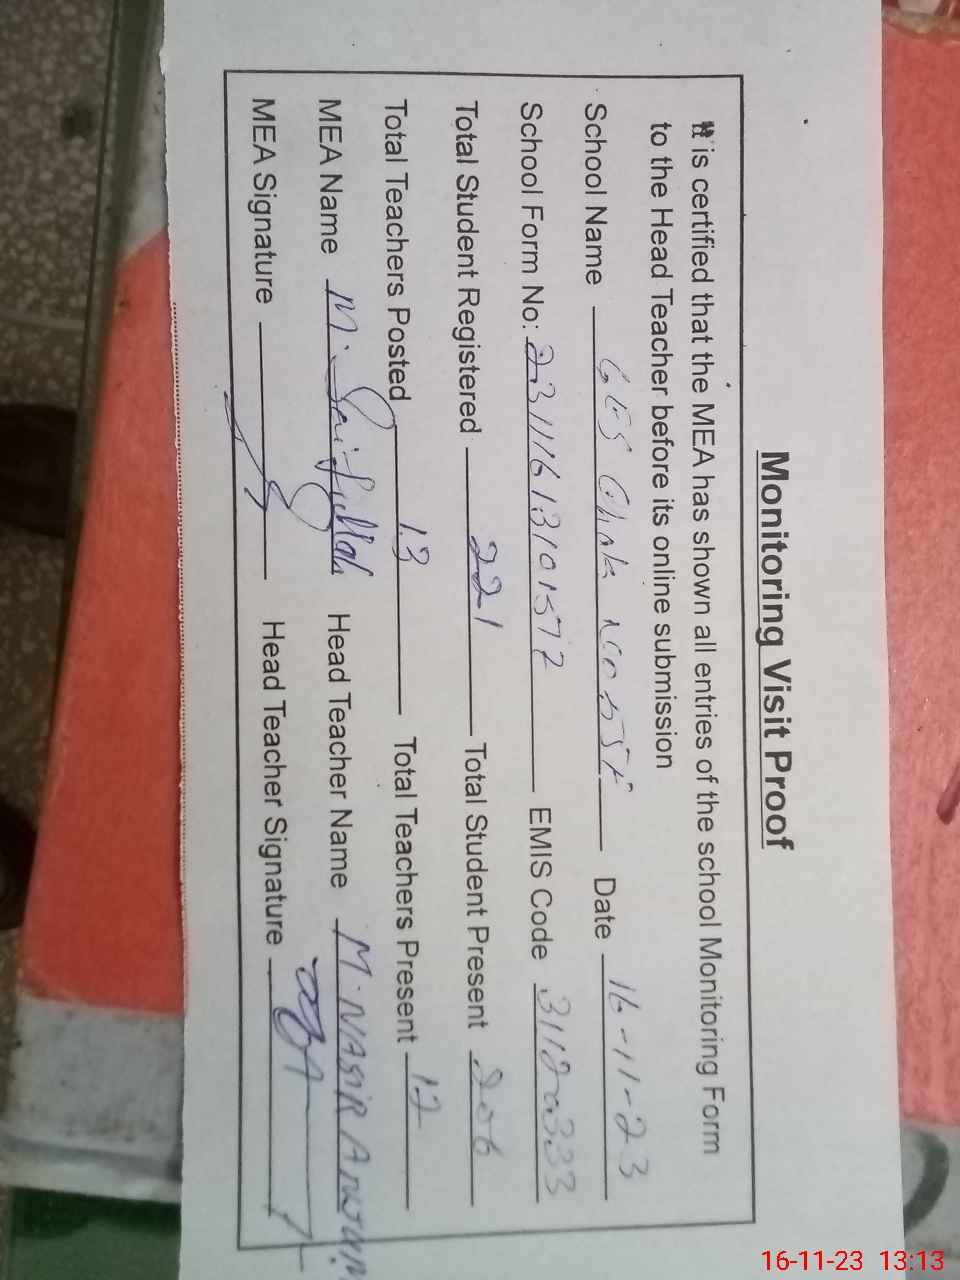 Monitoring Visit Proof
It is certified that the MEA has shown all entries of the school Monitoring Form
to the Head Teacher before its online submission
School Name GES Chak Date 16-11-23
School Form No: 23111613101572 EMIS Code 31120333
Total Student Registered 221 Total Student Present 206
Total Teachers Posted 13 Total Teachers Present 12
MEA Name M. Saifullah Head Teacher Name M. NASIR Anjum
MEA Signature Head Teacher Signature
16-11-23 13:13